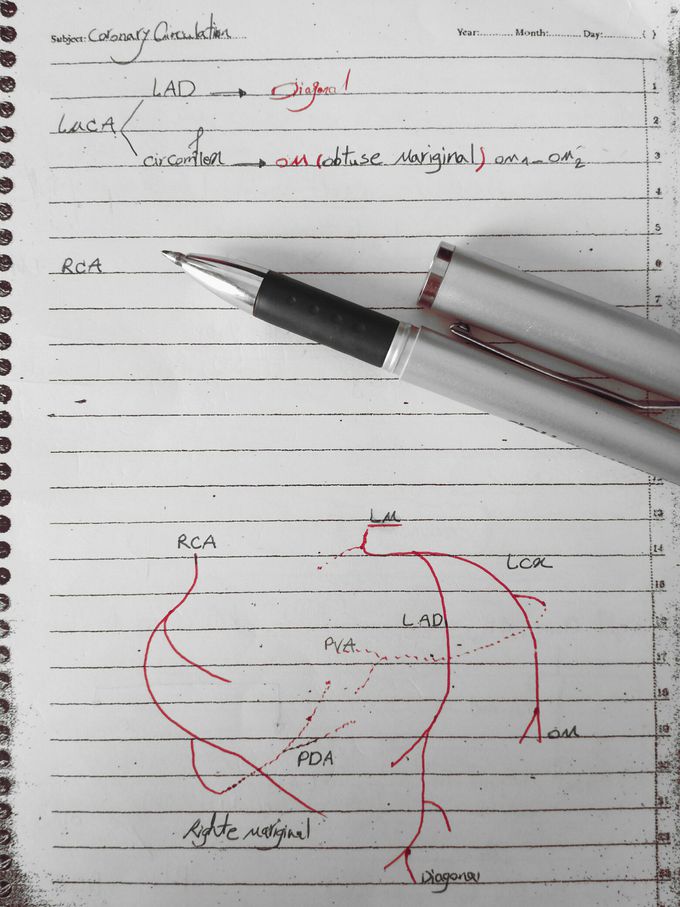 Subject: Coronary Circulation Year: Month: Day: ( )
LAD → Diagonal
LMCA
circomflex → OM (obtuse Mariginal) OM1 - OM2
RCA
1
2
3
4
5
6
7
12
13
14
15
16
17
18
19
LM
RCA
LCx
LAD
PVA
OM
PDA
Righte Mariginal
Diagonal